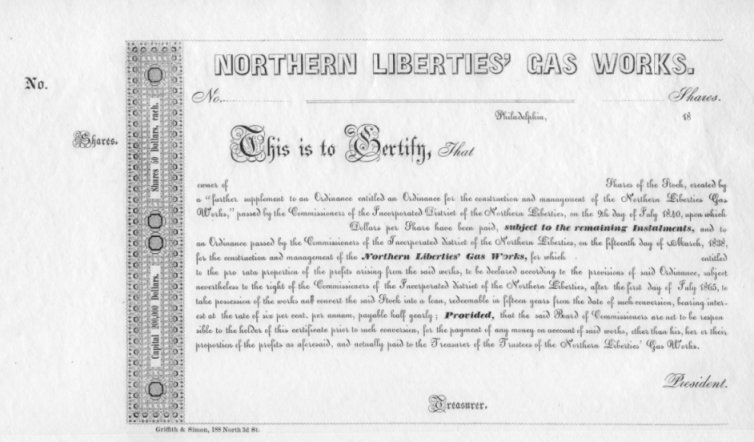 NORTHERN LIBERTIES' GAS WORKS.
No.
No. Shares.
Philadelphia, 18
Shares.
This is to Certify, That
owner of Shares of the Stock, created by
a "further supplement to an Ordinance entitled an Ordinance for the construction and management of the Northern Liberties Gas
Works," passed by the Commissioners of the Incorporated District of the Northern Liberties, on the 9th day of July 1840, upon which
Dollars per Share have been paid, subject to the remaining Instalments, and to
an Ordinance passed by the Commissioners of the Incorporated District of the Northern Liberties, on the fifteenth day of March, 1838,
for the construction and management of the Northern Liberties' Gas Works, for which entitled
to the pro rata proportion of the profits arising from the said works, to be declared according to the provisions of said Ordinance, subject
nevertheless to the right of the Commissioners of the Incorporated district of the Northern Liberties, after the first day of July 1865, to
take possession of the works and convert the said Stock into a loan, redeemable in fifteen years from the date of such conversion, bearing inter-
est at the rate of six per cent. per annum, payable half yearly; Provided, that the said Board of Commissioners are not to be respon
sible to the holder of this certificate prior to such conversion, for the payment of any money on account of said works, other than his, her or their
proportion of the profits as aforesaid, and actually paid to the Treasurer of the Trustees of the Northern Liberties' Gas Works.
President.
Treasurer.
Capital 200,000 Dollars.
Shares 50 Dollars, each.
Griffith & Simon, 188 North 3d St.